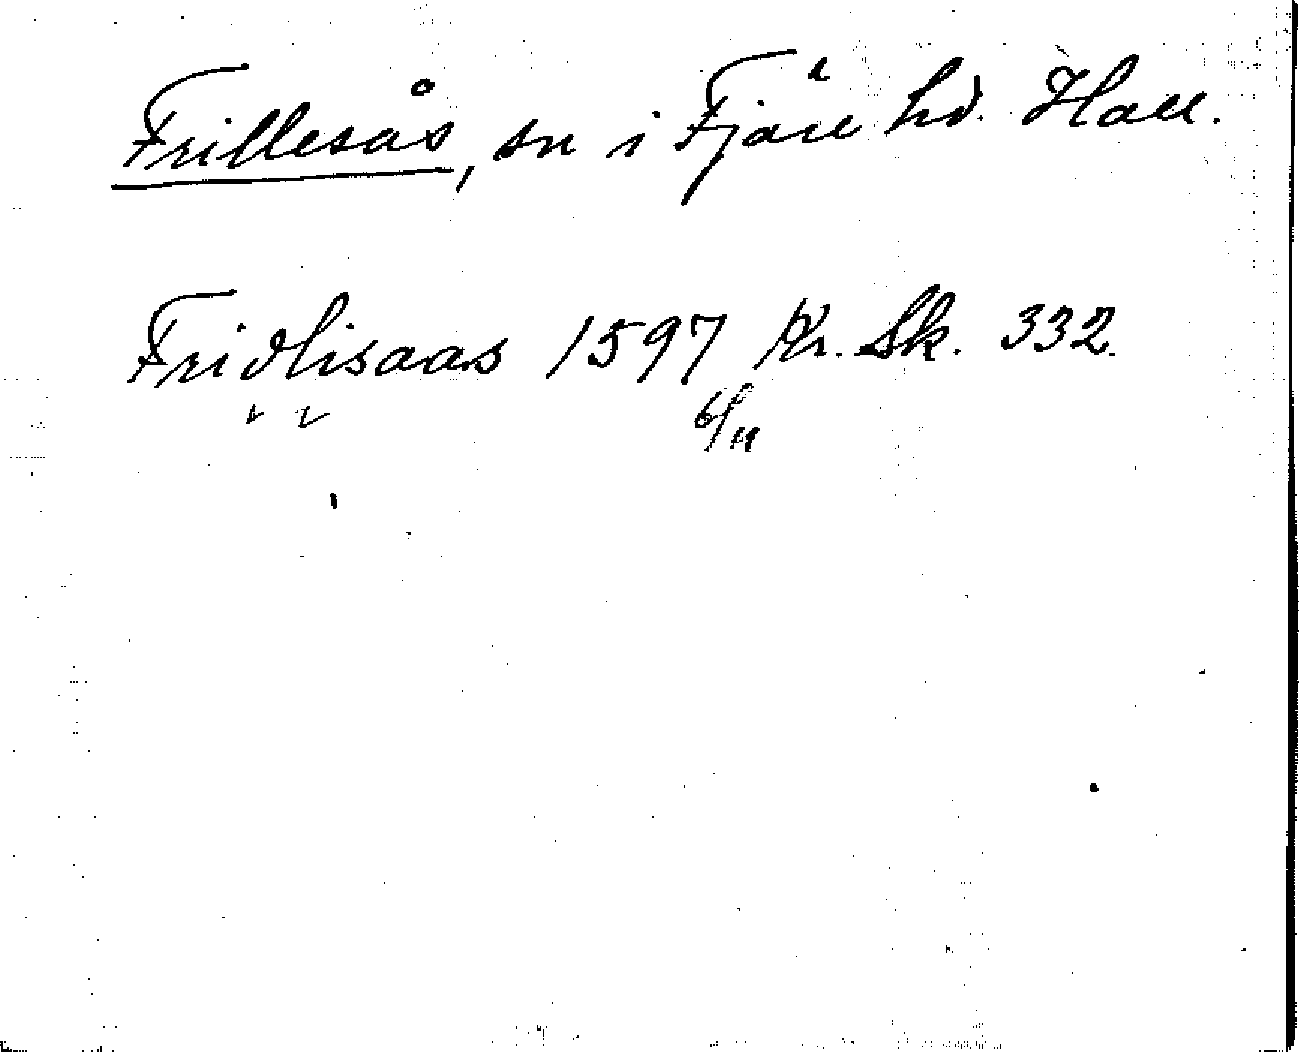 Frillesås, sn i Fjäre hd. Hall.
Fridlisaas 1597 Kr. Sk. 332.
6/11